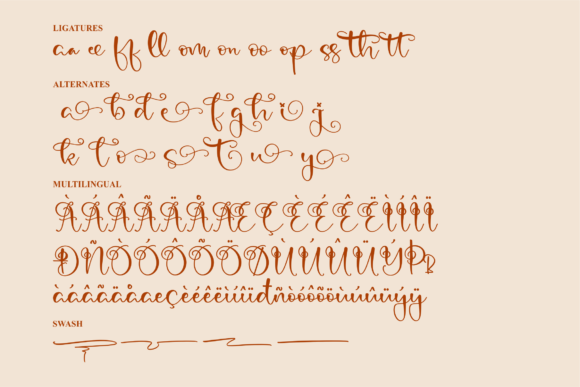 LIGATURES
aa ee ff ll om on oo op ss th tt
ALTERNATES
a b d e f g h i j
k l o s t u y
MULTILINGUAL
À Á Â Ã Ä Å Æ Ç È É Ê Ë Ì Í Î Ï
Ð Ñ Ò Ó Ô Õ Ö Ø Ù Ú Û Ü Ý Þ
à á â ã ä å æ ç è é ê ë ì í î ï đ ñ ò ó ô õ ö ù ú û ü ý ÿ
SWASH